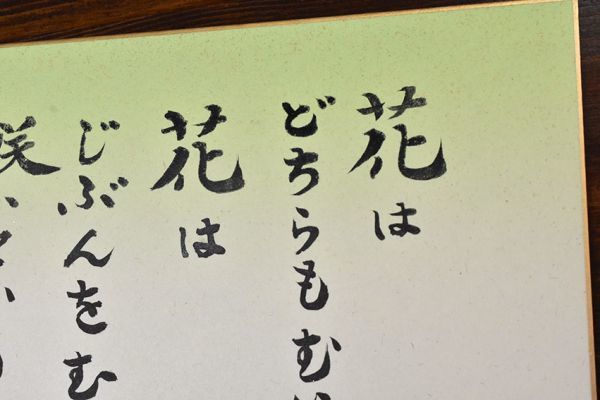 花は
どちらもむ
花は
じぶんをむ
咲